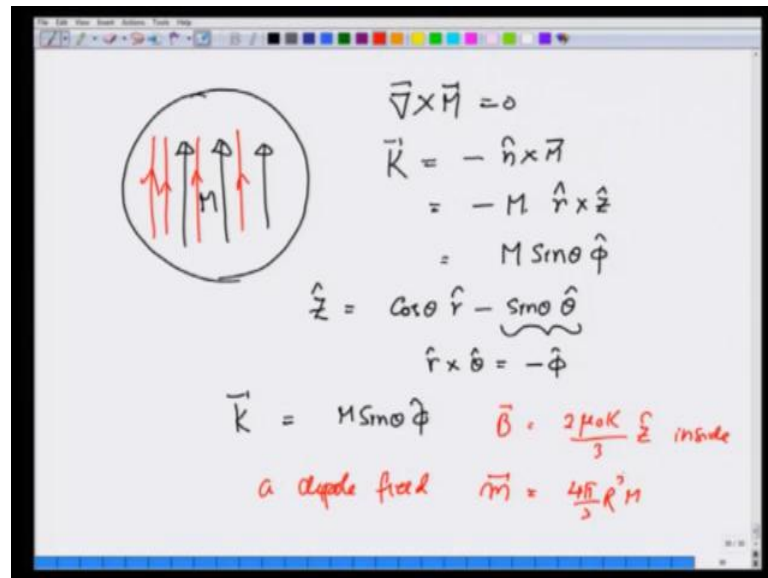 File Edit View Insert Actions Tools Help
∇⃗ × M⃗ = 0
K⃗ = - n̂ × M⃗
= - M r̂ × ẑ
M
= M Sinθ φ̂
ẑ = Cosθ r̂ - Sinθ θ̂
r̂ × θ̂ = - φ̂
K⃗ = M Sinθ φ̂ B⃗ = 2μ₀K/3 ẑ inside
a dipole field m⃗ = 4π/3 R³ M